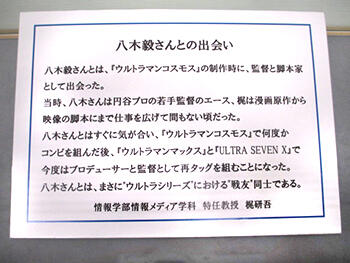 八木毅さんとの出会い
八木毅さんとは、『ウルトラマンコスモス』の制作時に、監督と脚本家
として出会った。
当時、八木さんは円谷プロの若手監督のエース、梶は漫画原作から
映像の脚本にまで仕事を広げて間もない頃だった。
八木さんとはすぐに気が合い、『ウルトラマンコスモス』で何度か
コンビを組んだ後、『ウルトラマンマックス』と『ULTRA SEVEN X』で
今度はプロデューサーと監督として再タッグを組むことになった。
八木さんとは、まさに"ウルトラシリーズ"における"戦友"同士である。
情報学部情報メディア学科 特任教授 梶研吾